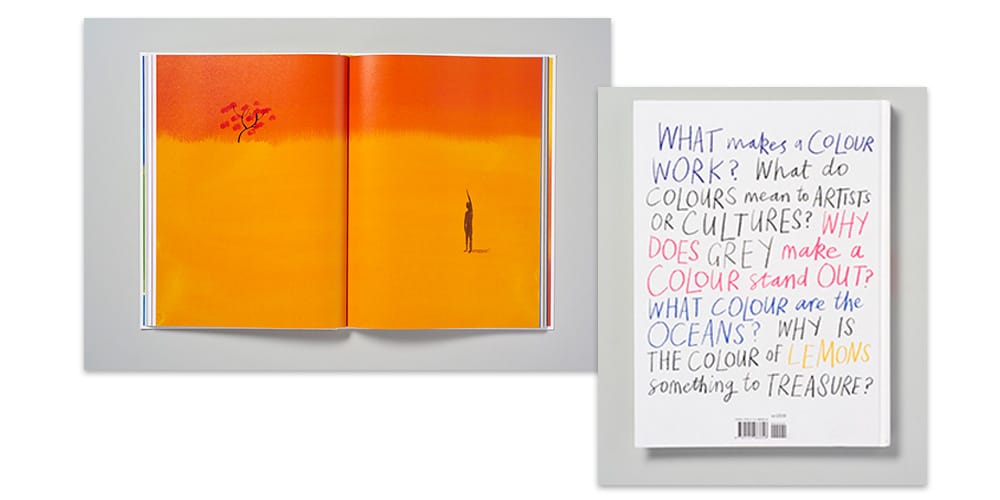 WHAT makes a COLOUR
WORK? What do
COLOURS mean to ARTISTS
OR CULTURES? WHY
DOES GREY make a
COLOUR stand OUT?
WHAT COLOUR are the
OCEANS? WHY IS
THE COLOUR of LEMONS
something to TREASURE?